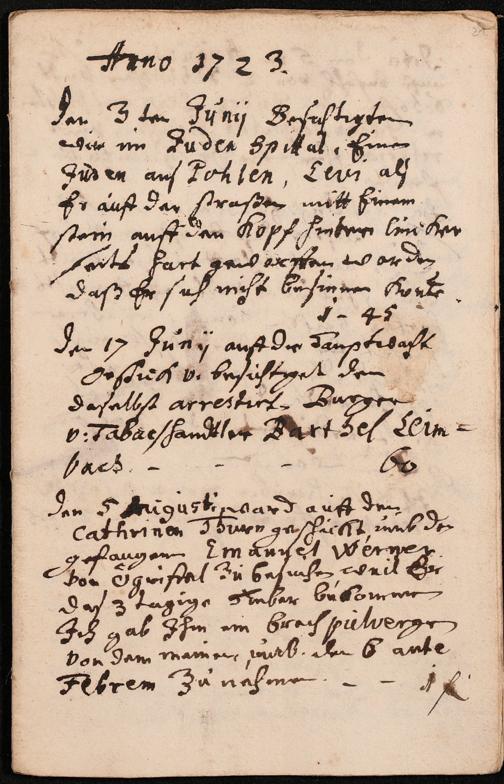 Anno 1723.
Den 3ten Junij Besichtigten
wir im Juden Spittal, Einen
Juden aus Pohlen, Levi als
Er auff der strassen mitt Einem
stein auff den Kopf hinten lincker
seits hart geworffen worden
daß Er sich nicht besinnen Konte
1 - 45
Den 17 Junij auff die Hauptwacht
v. besichtiget den
daselbst arrestirt. Burger
v: Tabacshandtler Barthel Leim=
bach. - - - 60
Den 5 Augusti ward auff den
Cathrinen Thurn geschickt umb den
gefangenen Emanuel Werner
von zu besuchen weil Er
das 3 tägige Fieber bekommen
Ich gab Ihm ein brechpülvergen
von dem meinen, den 6 ante
Febrem Zu nehmen. - - 1 f